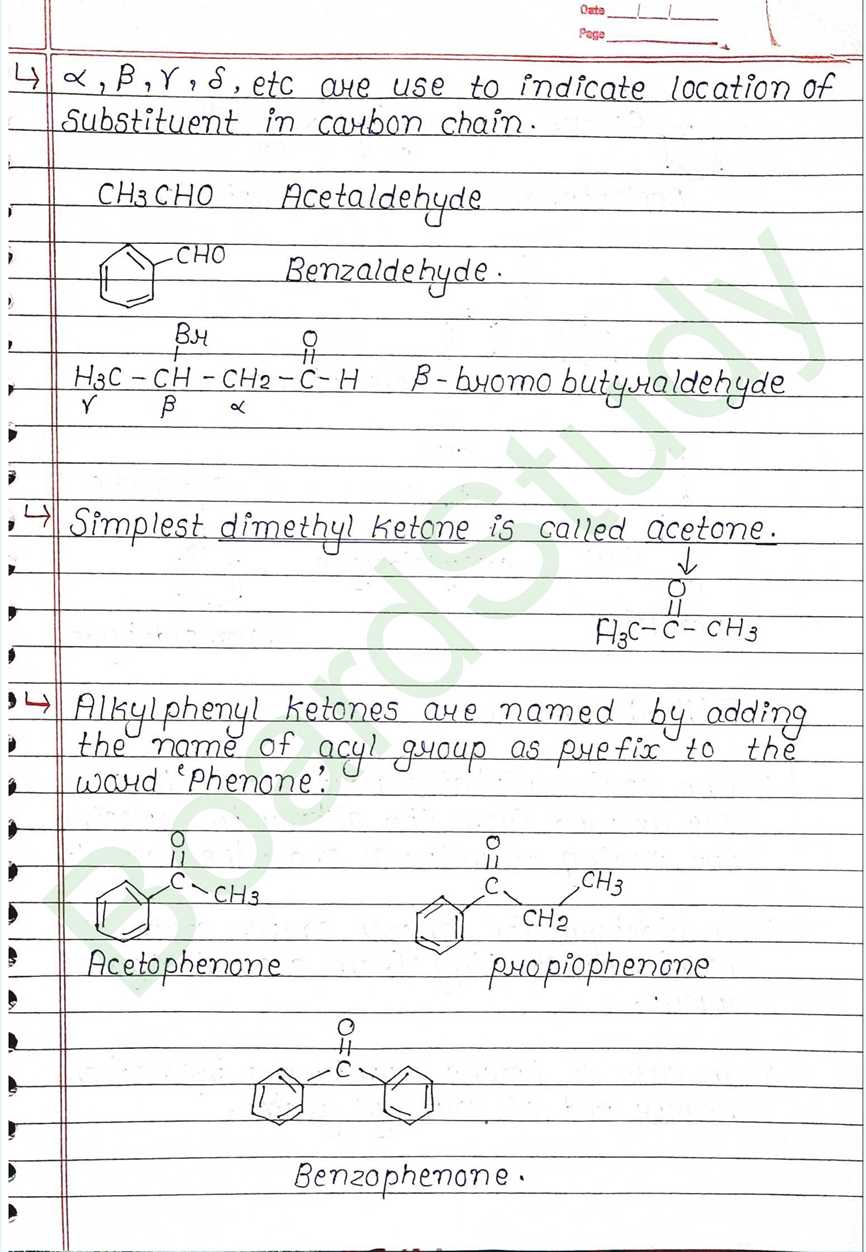 Date
Page
↳ α, β, γ, δ, etc are use to indicate location of
substituent in carbon chain.
CH3CHO Acetaldehyde
CHO
Benzaldehyde.
Br O
H3C - CH - CH2 - C - H β - bromo butyraldehyde
γ β α
↳ Simplest dimethyl ketone is called acetone.
O
H3C - C - CH3
↳ Alkylphenyl ketones are named by adding
the name of acyl group as prefix to the
word 'Phenone'.
O
C CH3
Acetophenone
O
C CH3
CH2
propiophenone
O
C
Benzophenone.
BoardStudy